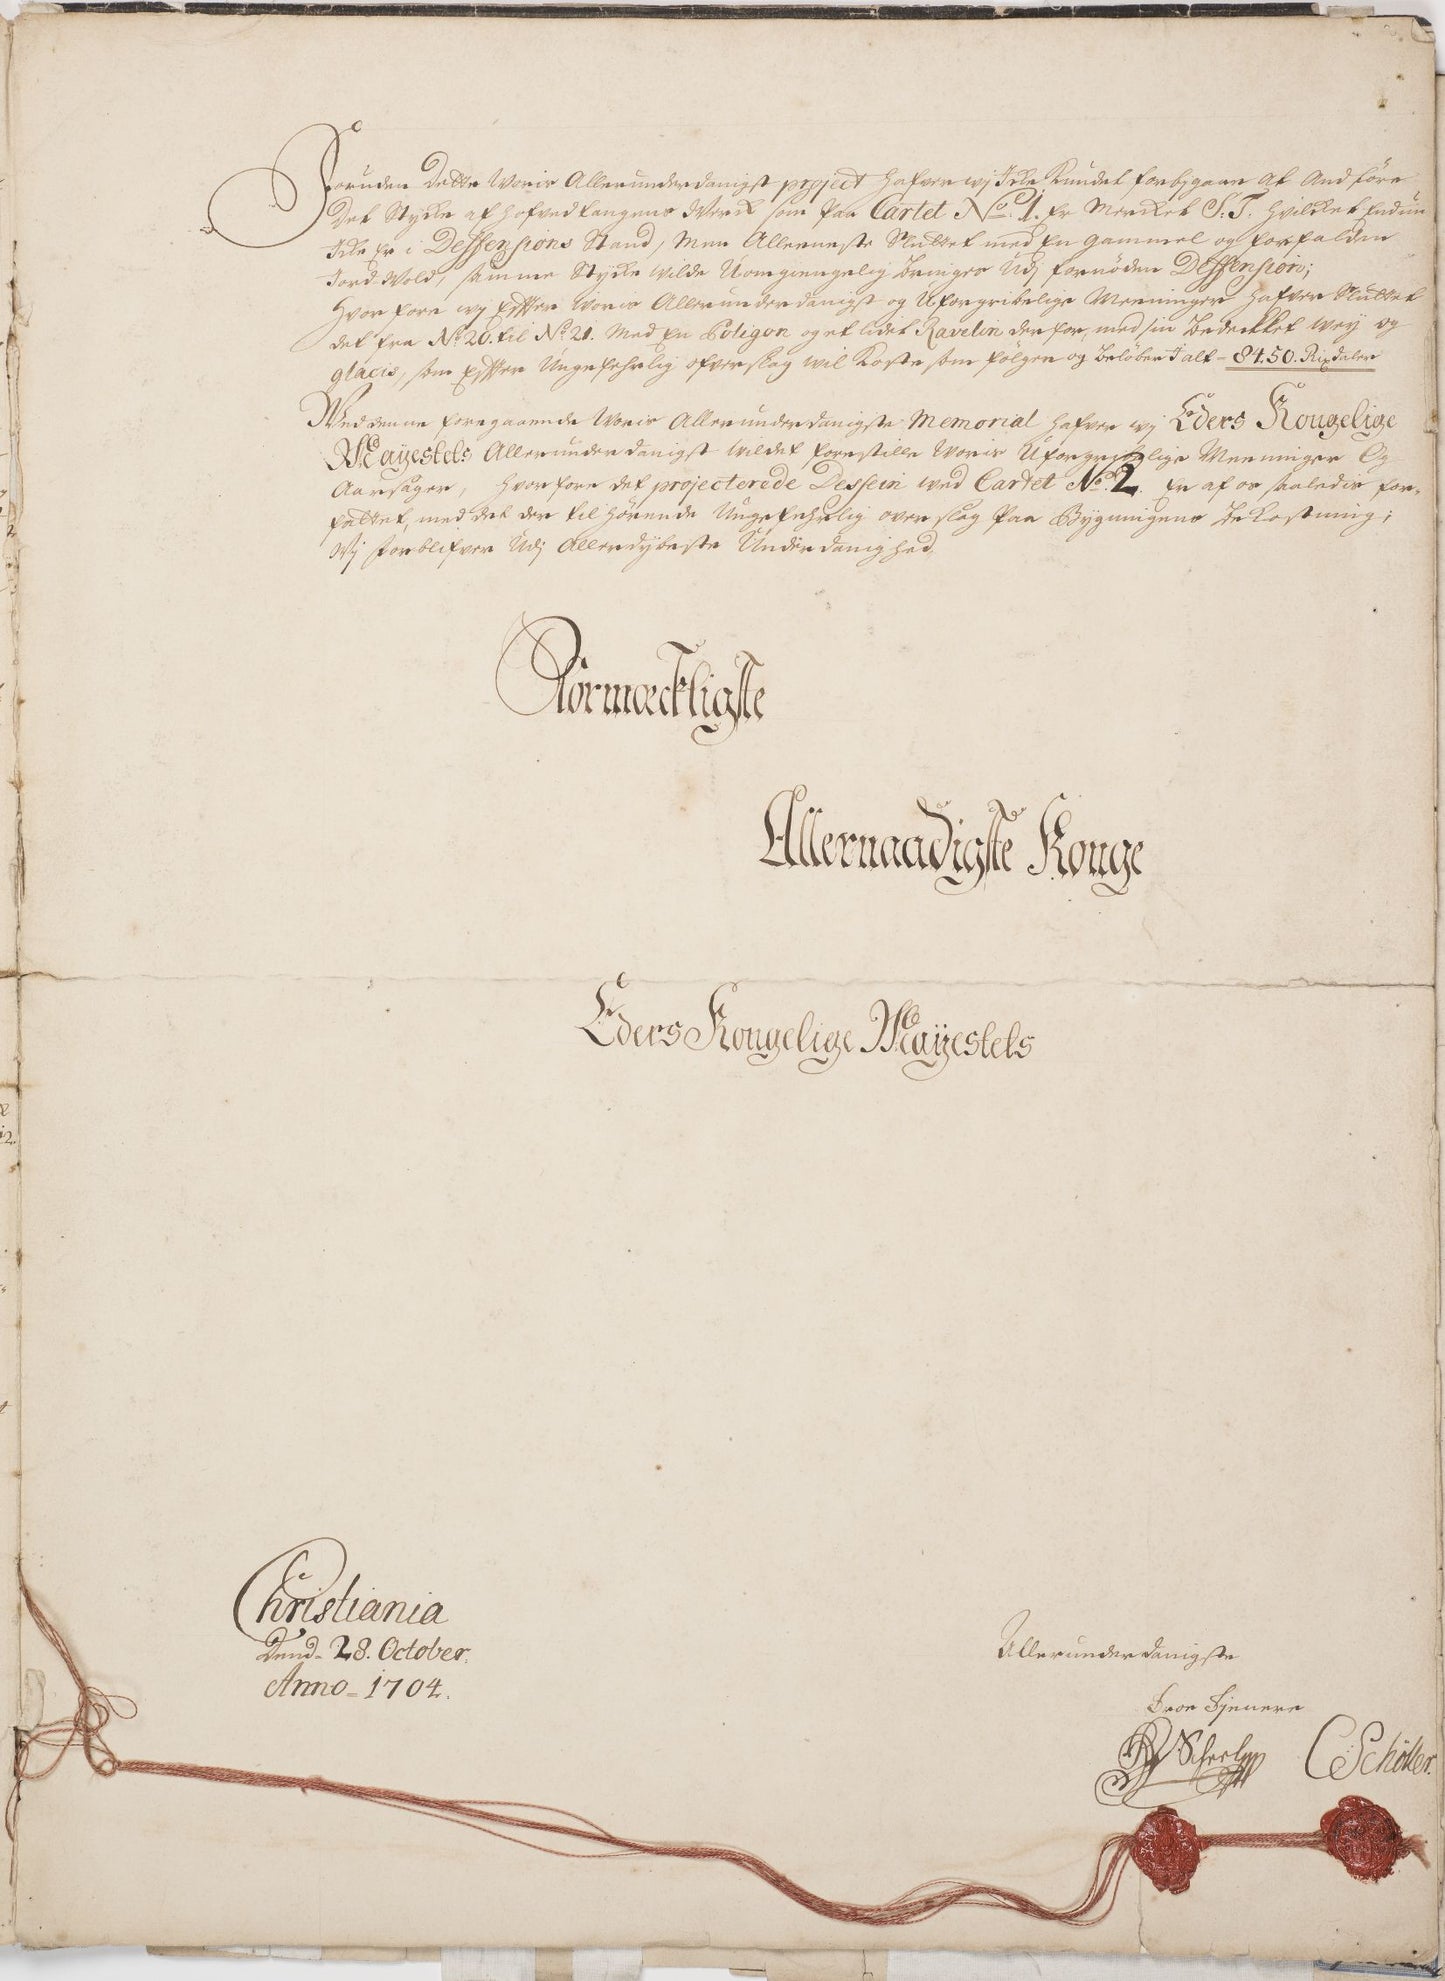 Foruden dette Woris Allerunderdanigst project hafver wj Icke Kundet forbygaae at Andföre
Det Stycke af hofved tangens Werck som paa Cartet No. 1. Er Mercket S: T. hvilcket Endnu
Icke Er i Deffensions Stand, Men Alleneste Sluttet med En gammel og forfalden
Jord Wold, samme Stycke wilde Uomgiengelig bringes Udj fornöden Deffension;
Hvorfore wj Effter Woris Allerunderdanigst og Uforgribelige Meeninger hafver Sluttet
det fra No. 20. til No. 21. Med En Poligon og et lidet Ravelin der for, med sin bedecktet wey og
glacis, som Effter Ungefehrlig ofverslag wil Koste som fölger og belöber I alt - 8450. Rixdaler
Wed denne foregaaende Woris Allerunderdanigste Memorial hafver wj Eders Kongelige
Mayestets Allerunderdanigst wildet forestille Woris Uforgribelige Meeninger Og
Aarsager, hvorfore det projecterede Dessein wed Cartet No. 2. Er af os saaledis for-
fattet, med det der til hörende Ungefehrlig overslag paa Bygningens bekostning;
Wj forblifver Udj Allerdybeste Underdanighed,
Stormæcktigste
Allernaadigste Konge
Eders Kongelige Mayestets
Christiania
Dend. 28. October.
Anno = 1704.
Allerunderdanigste
Troe Tjenere
Scheel
C Schöller.